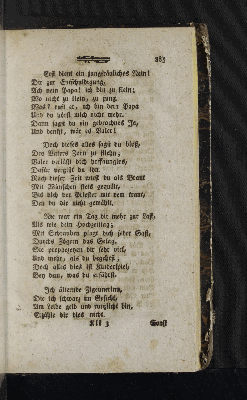 383
Erst dient ein jungfräuliches Nein!
Dir zur Entschuldigung,
Ach nein Papa! ich bin zu klein;
Wo nicht zu klein, zu jung.
Was? ruft er, ich bin dein Papa
Und du hörst mich nicht mehr.
Dann sagst du ein gebrochnes Ja,
Und denkst, wär es Vater!
Doch dieses alles sagst du bloß,
Des Vaters Zorn zu fliehn;
Vater verläßt dich hoffnungslos,
Dafür vergißt du ihn.
Nach dieser Zeit wirst du als Braut
Mit Wünschen stets gequält,
Bis dich der Priester mit dem traut,
Den du dir nicht gewählt.
Nie war ein Tag dir mehr zur Last,
Als wie dein Hochzeittag;
Mit Schrauben plagt dich jeder Gast,
Durchs Zögern das Gelag.
Sie prophezeyen dir sehr viel,
Und mehr, als du begehrst,
Doch alles dies ist Kinderspiel,
Bey dem, was du erfährst.
Ich alternde Zigeunerinn,
Die ich schwarz im Gesicht,
Am Leibe gelb und runzlicht bin,
Erzähle dir dies nicht.
Sonst